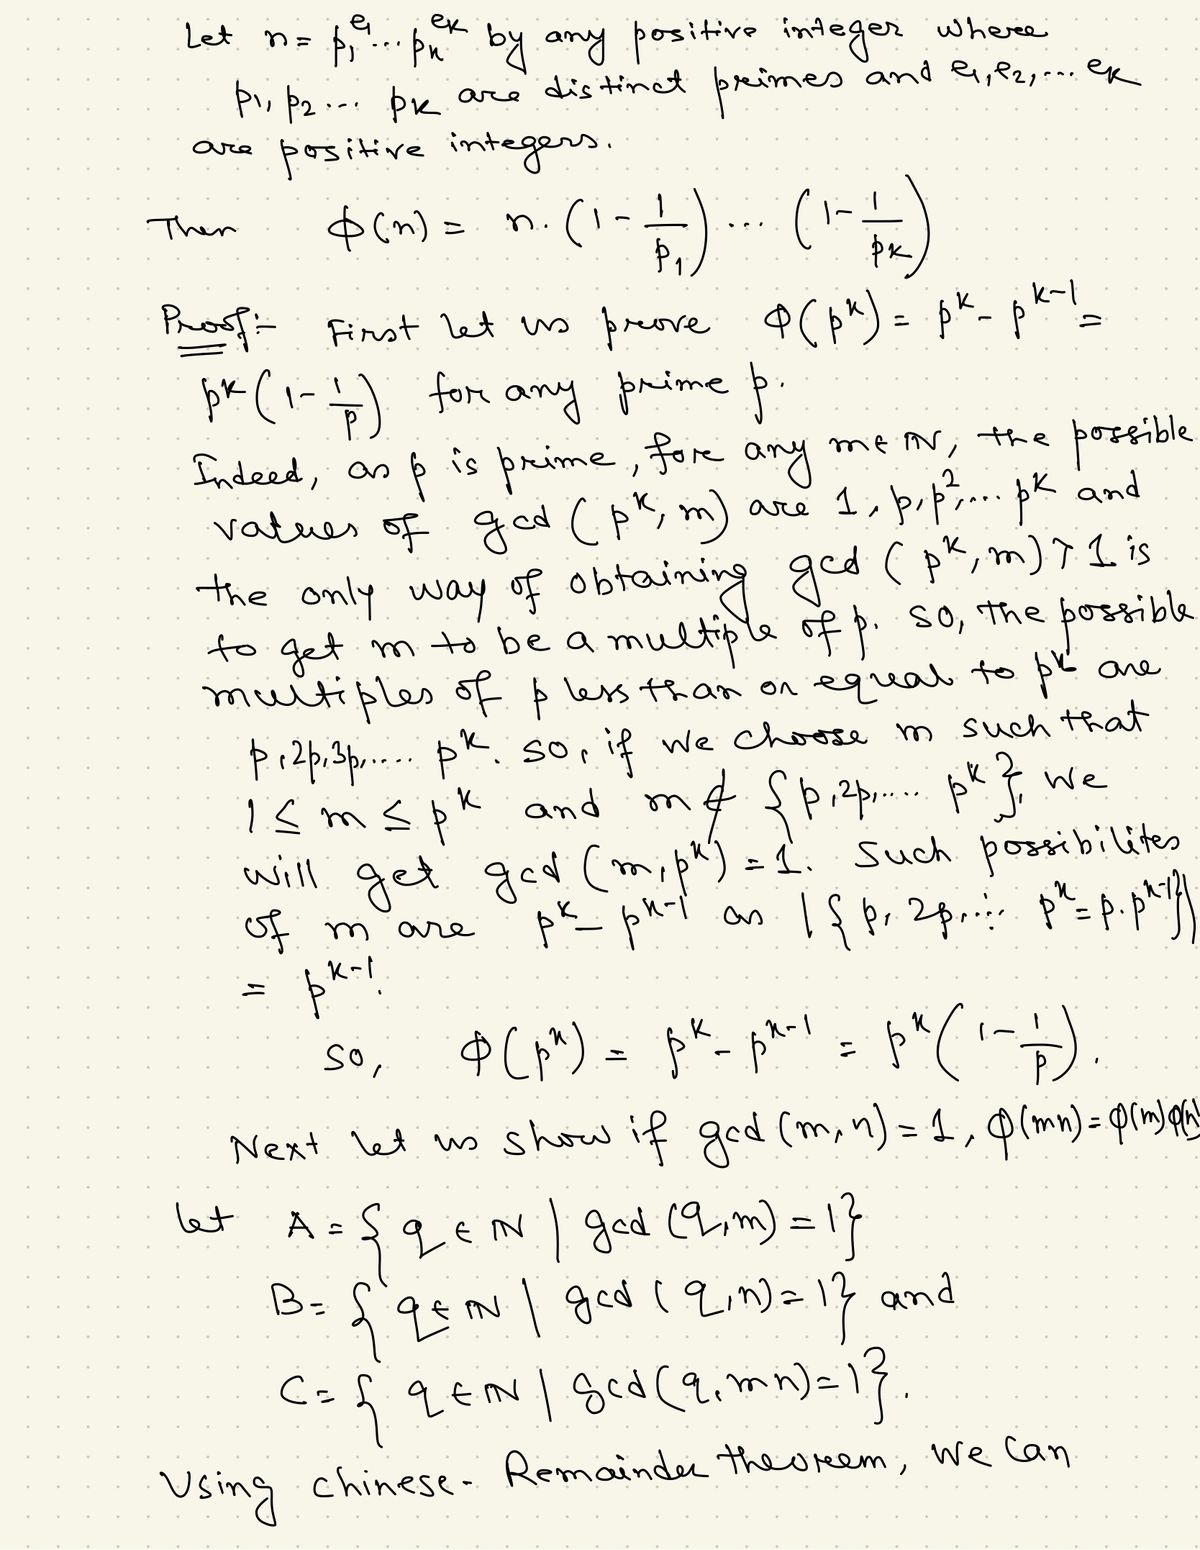 Let n = p₁^e₁ ... pₖ^eₖ by any positive integer where
p₁, p₂ ... pₖ are distinct primes and e₁, e₂, ... eₖ
are positive integers.
Then ϕ(n) = n. (1 - 1/p₁) ... (1 - 1/pₖ)
Proof:- First let us prove ϕ(p^k) = p^k - p^(k-1) =
p^k (1 - 1/p) for any prime p.
Indeed, as p is prime, for any m ∈ ℕ, the possible
values of gcd (p^k, m) are 1, p, p², ... p^k and
the only way of obtaining gcd (p^k, m) > 1 is
to get m to be a multiple of p. so, the possible
multiples of p less than or equal to p^k are
p, 2p, 3p, .... p^k. so, if we choose m such that
1 ≤ m ≤ p^k and m ∉ {p, 2p, .... p^k}, we
will get gcd (m, p^k) = 1. Such possibilites
of m are p^k - p^(k-1) as |{p, 2p, ... p^k = p.p^(k-1)}|
= p^(k-1).
so, ϕ(p^k) = p^k - p^(k-1) = p^k (1 - 1/p).
Next let us show if gcd (m, n) = 1, ϕ(mn) = ϕ(m) ϕ(n)
let A = { q ∈ ℕ | gcd (q, m) = 1}
B = { q ∈ ℕ | gcd (q, n) = 1} and
C = { q ∈ ℕ | gcd (q, mn) = 1}.
Using chinese - Remainder theorem, we can